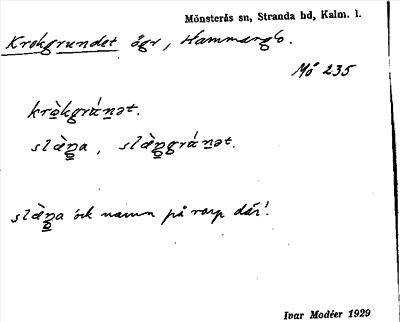 Mönsterås sn, Stranda hd, Kalm. l.
Krokgrundet ögr, Hammarglo.
Mö 235
kròkgránət.
slàŋa, slàŋgránət.
slàŋa ock namn på varp där!
Ivar Modéer 1929